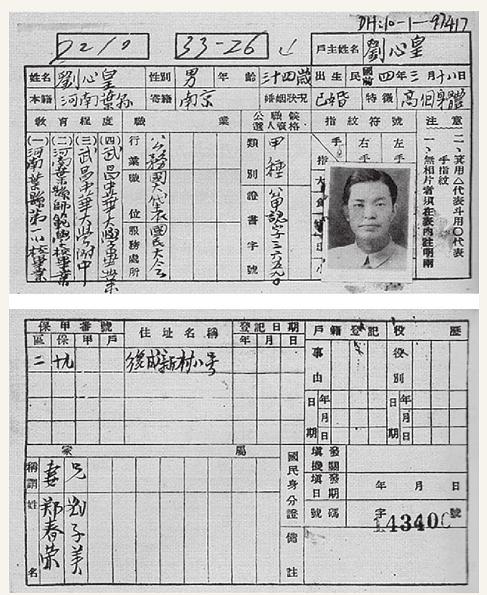 DH:10-1-97417
33-26
戶主姓名 劉心皇
姓名 劉心皇 性別 男 年齡 三十四歲 出生 民國前 四年三月十八日
本籍 河南葉縣 寄籍 南京 婚姻狀況 已婚 特徵 高個身體
教育程度
(一)河南葉縣第一小校畢業
(二)河南葉縣師範學校畢業
(三)武昌中華大學附中
(四)武昌中華大學畢業
職業
行業 公務
職位 國大代表
服務處所 國民大會
公職候選人資格
類別 甲種
證書字號
指紋符號
右手 左手
注意
一、無相片者須在表內註明兩手指紋
二、箕用△代表斗用○代表
保甲番號 住址名稱 登記日期 戶籍登記 役歷
區 保 甲 戶 年 月 日 事由 役別
二 十九 後成新村八号
年 月 日期 年 月 日期
家屬
稱謂 妻 兄
姓名 郑春荣 劉子美
國民身分證
填發機關
填發日期 年 月 日
號碼 字 號
備註